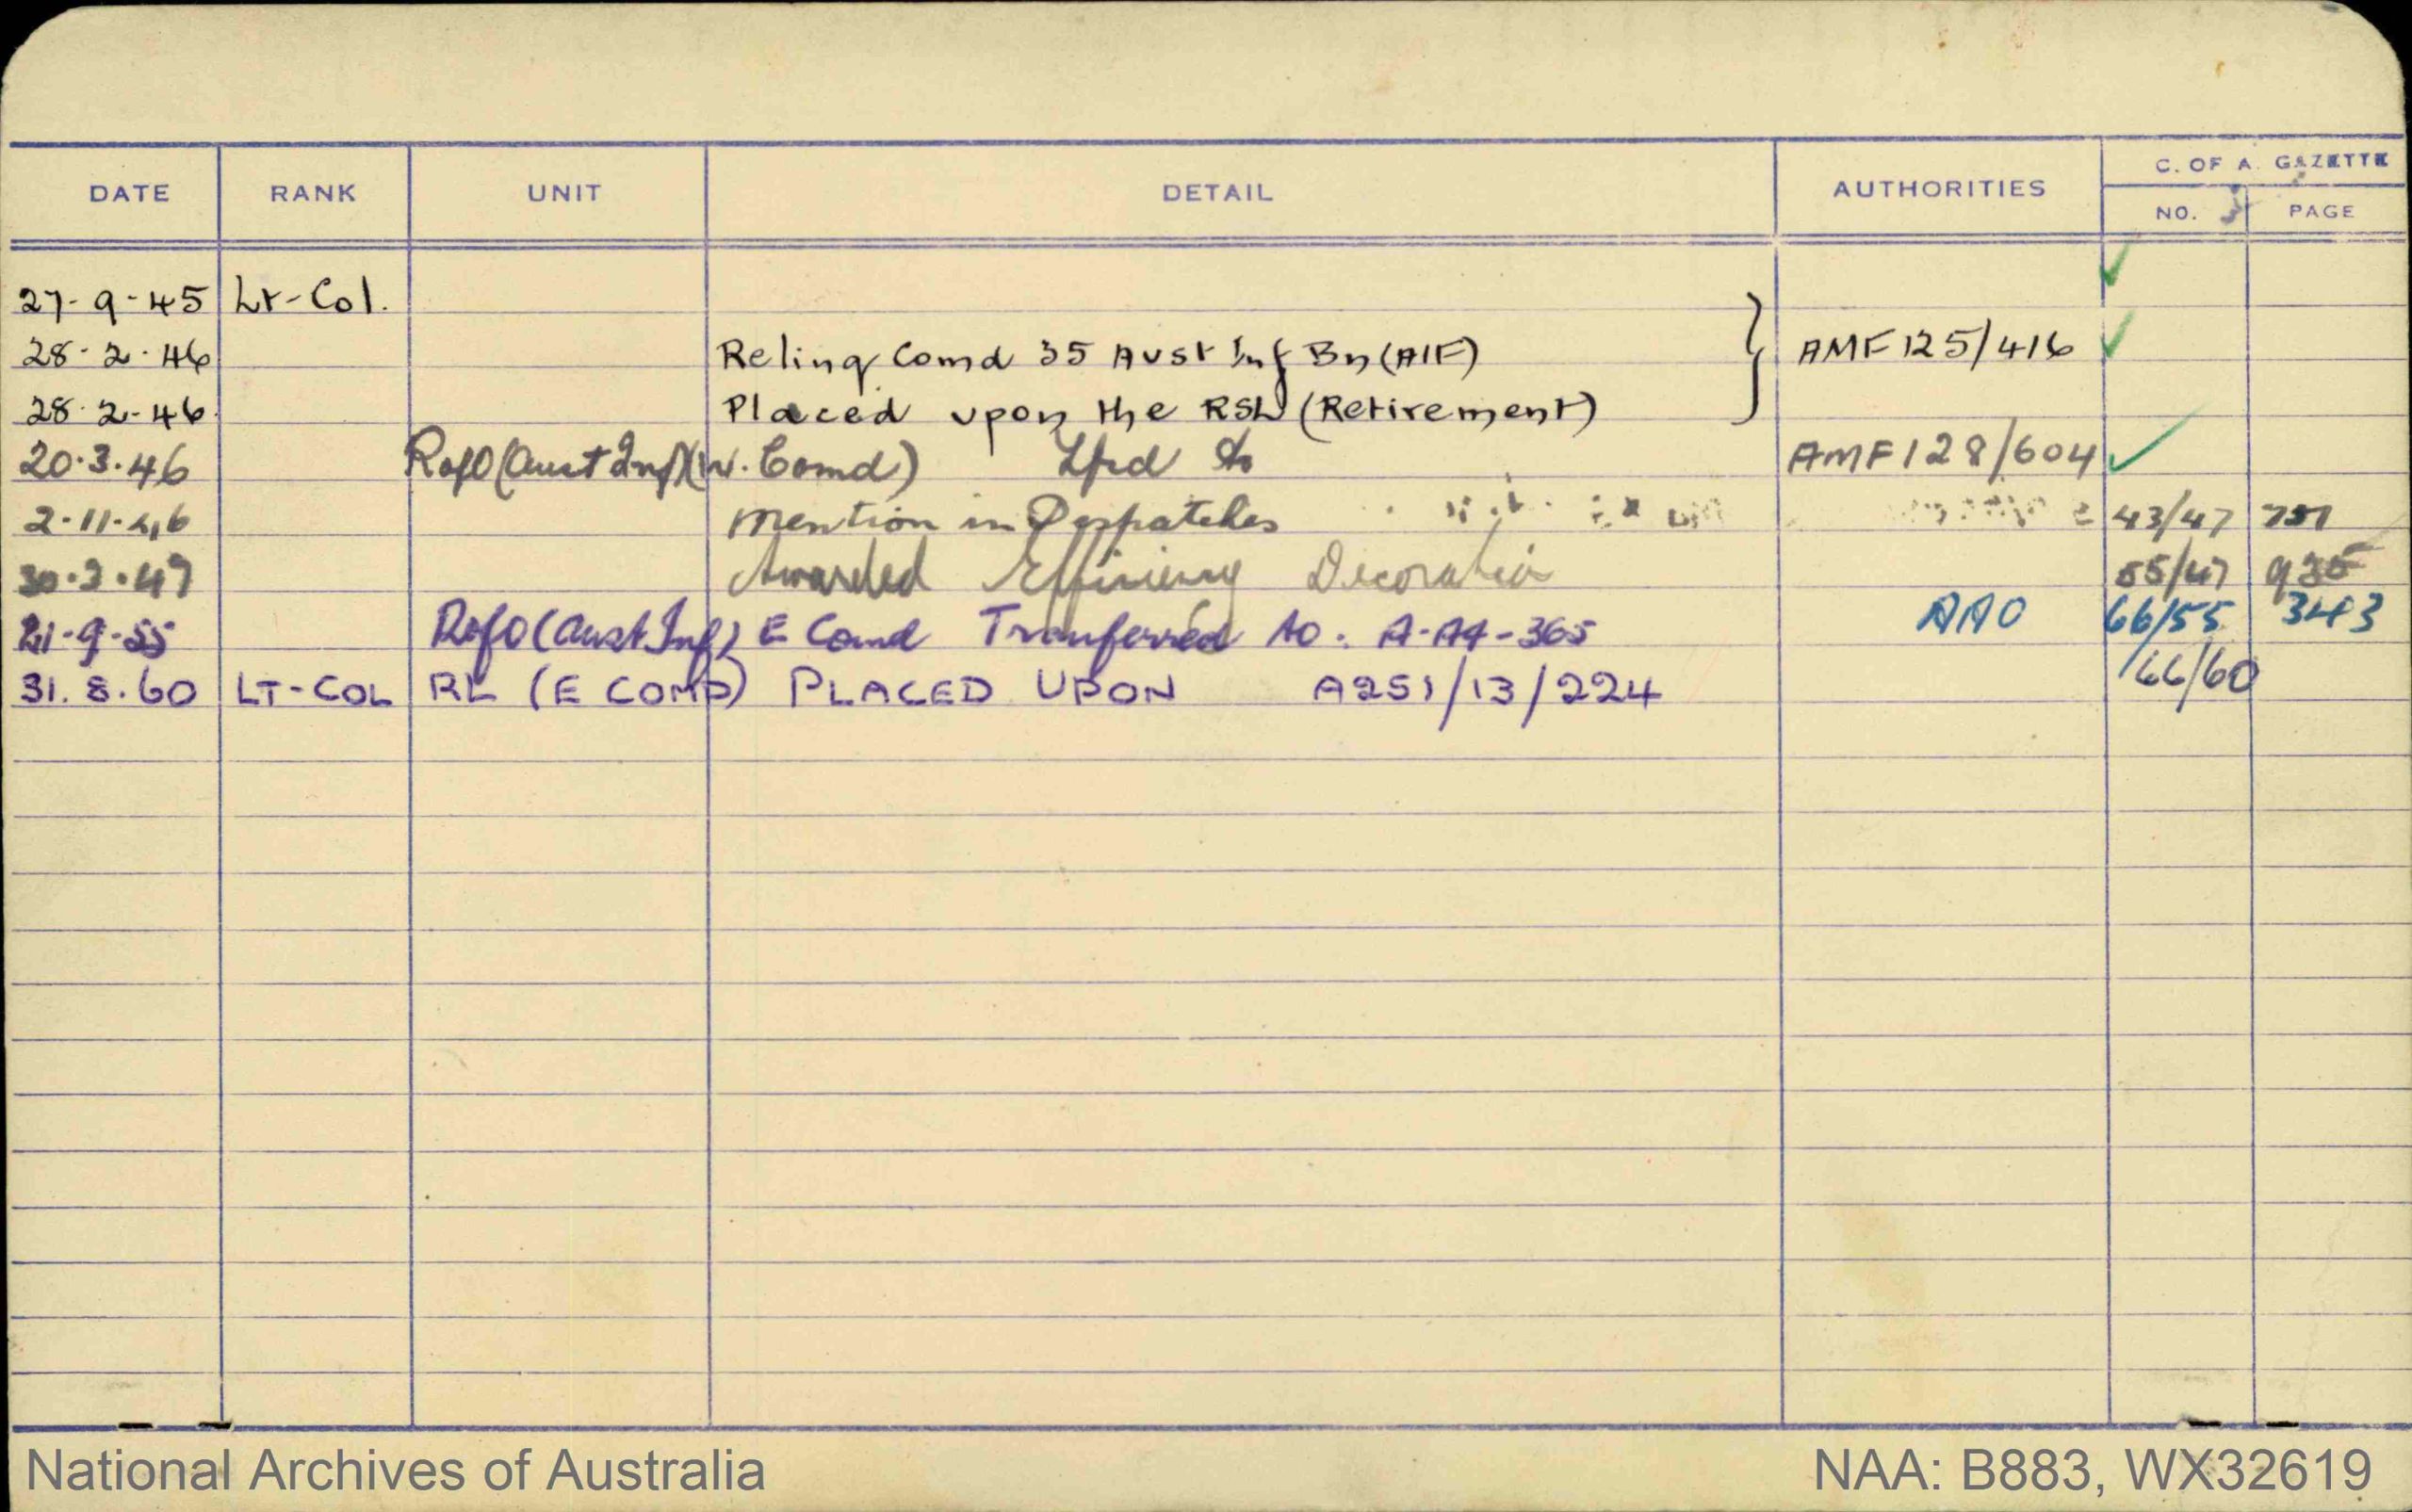 DATE RANK UNIT DETAIL AUTHORITIES C. OF A. GAZETTE
NO. PAGE
27-9-45 Lt-Col.
28-2-46 Relinq Comd 35 Aust Inf Bn (AIF) AMF 125/416
28-2-46 Placed upon the RSL (Retirement)
20.3.46 RofO (Aust Inf) (W. Comd) Tfrd to AMF 128/604
2-11-46 Mention in Despatches 43/47
Awarded Efficiency Decoration 55/47
21-9-55 RofO (Aust Inf) E Comd Tranferred to: A-A4-365 AAO 66/55 3483
31.8.60 LT-COL RL (E COMD) PLACED UPON A251/13/224 66/60
National Archives of Australia NAA: B883, WX32619